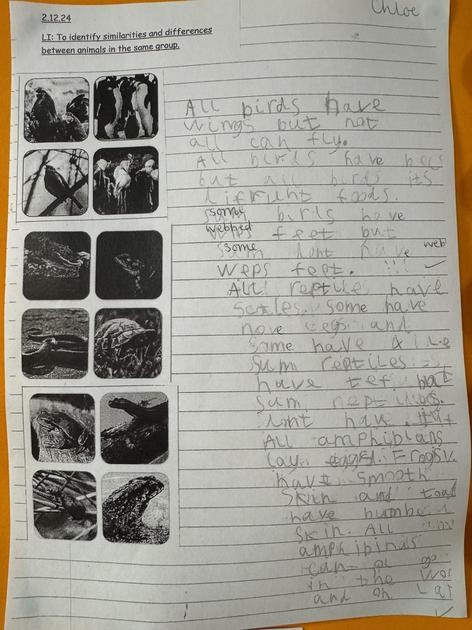 Chloe
2.12.24
LI: To identify similarities and differences
between animals in the same group.
All birds have
wings but not
all can fly.
All birds have
but all birds its
foods.
some birds have
webbed feet but
some dont have web
weps feet.
All reptiles have
Scales. some have
nove legs and
some have 4
sum reptiles
have tet but
sum
dont have.
All amphipians
lay eggs. Frogs
have smooth
skin and toad
have bumb
skin. All
amphibinds
can go
in the
and on